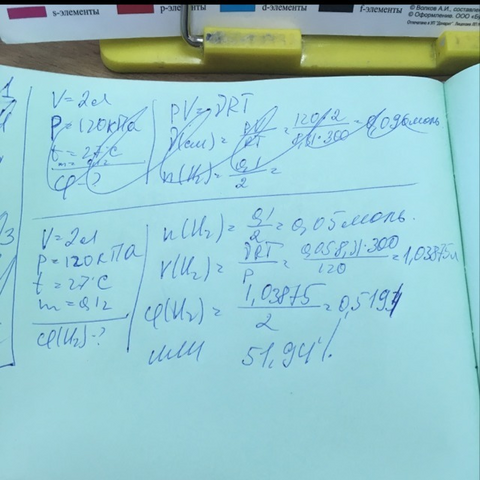 s-элементы p-элементы d-элементы f-элементы
© Волков А.И., составление
© Оформление. ООО
V = 2л
P = 120кПа
t = 27°C
m = 0,1г
φ - ?
PV = νRT
ν(см) = PV/RT = 120·2/8,31·300 = 0,096моль
n(H₂) = 0,1/2 =
V = 2л
P = 120кПа
t = 27°C
m = 0,1г
φ(H₂) - ?
n(H₂) = 0,1/2 = 0,05моль.
V(H₂) = νRT/P = 0,05·8,31·300/120 = 1,03875л
φ(H₂) = 1,03875/2 = 0,5194
или 51,94%